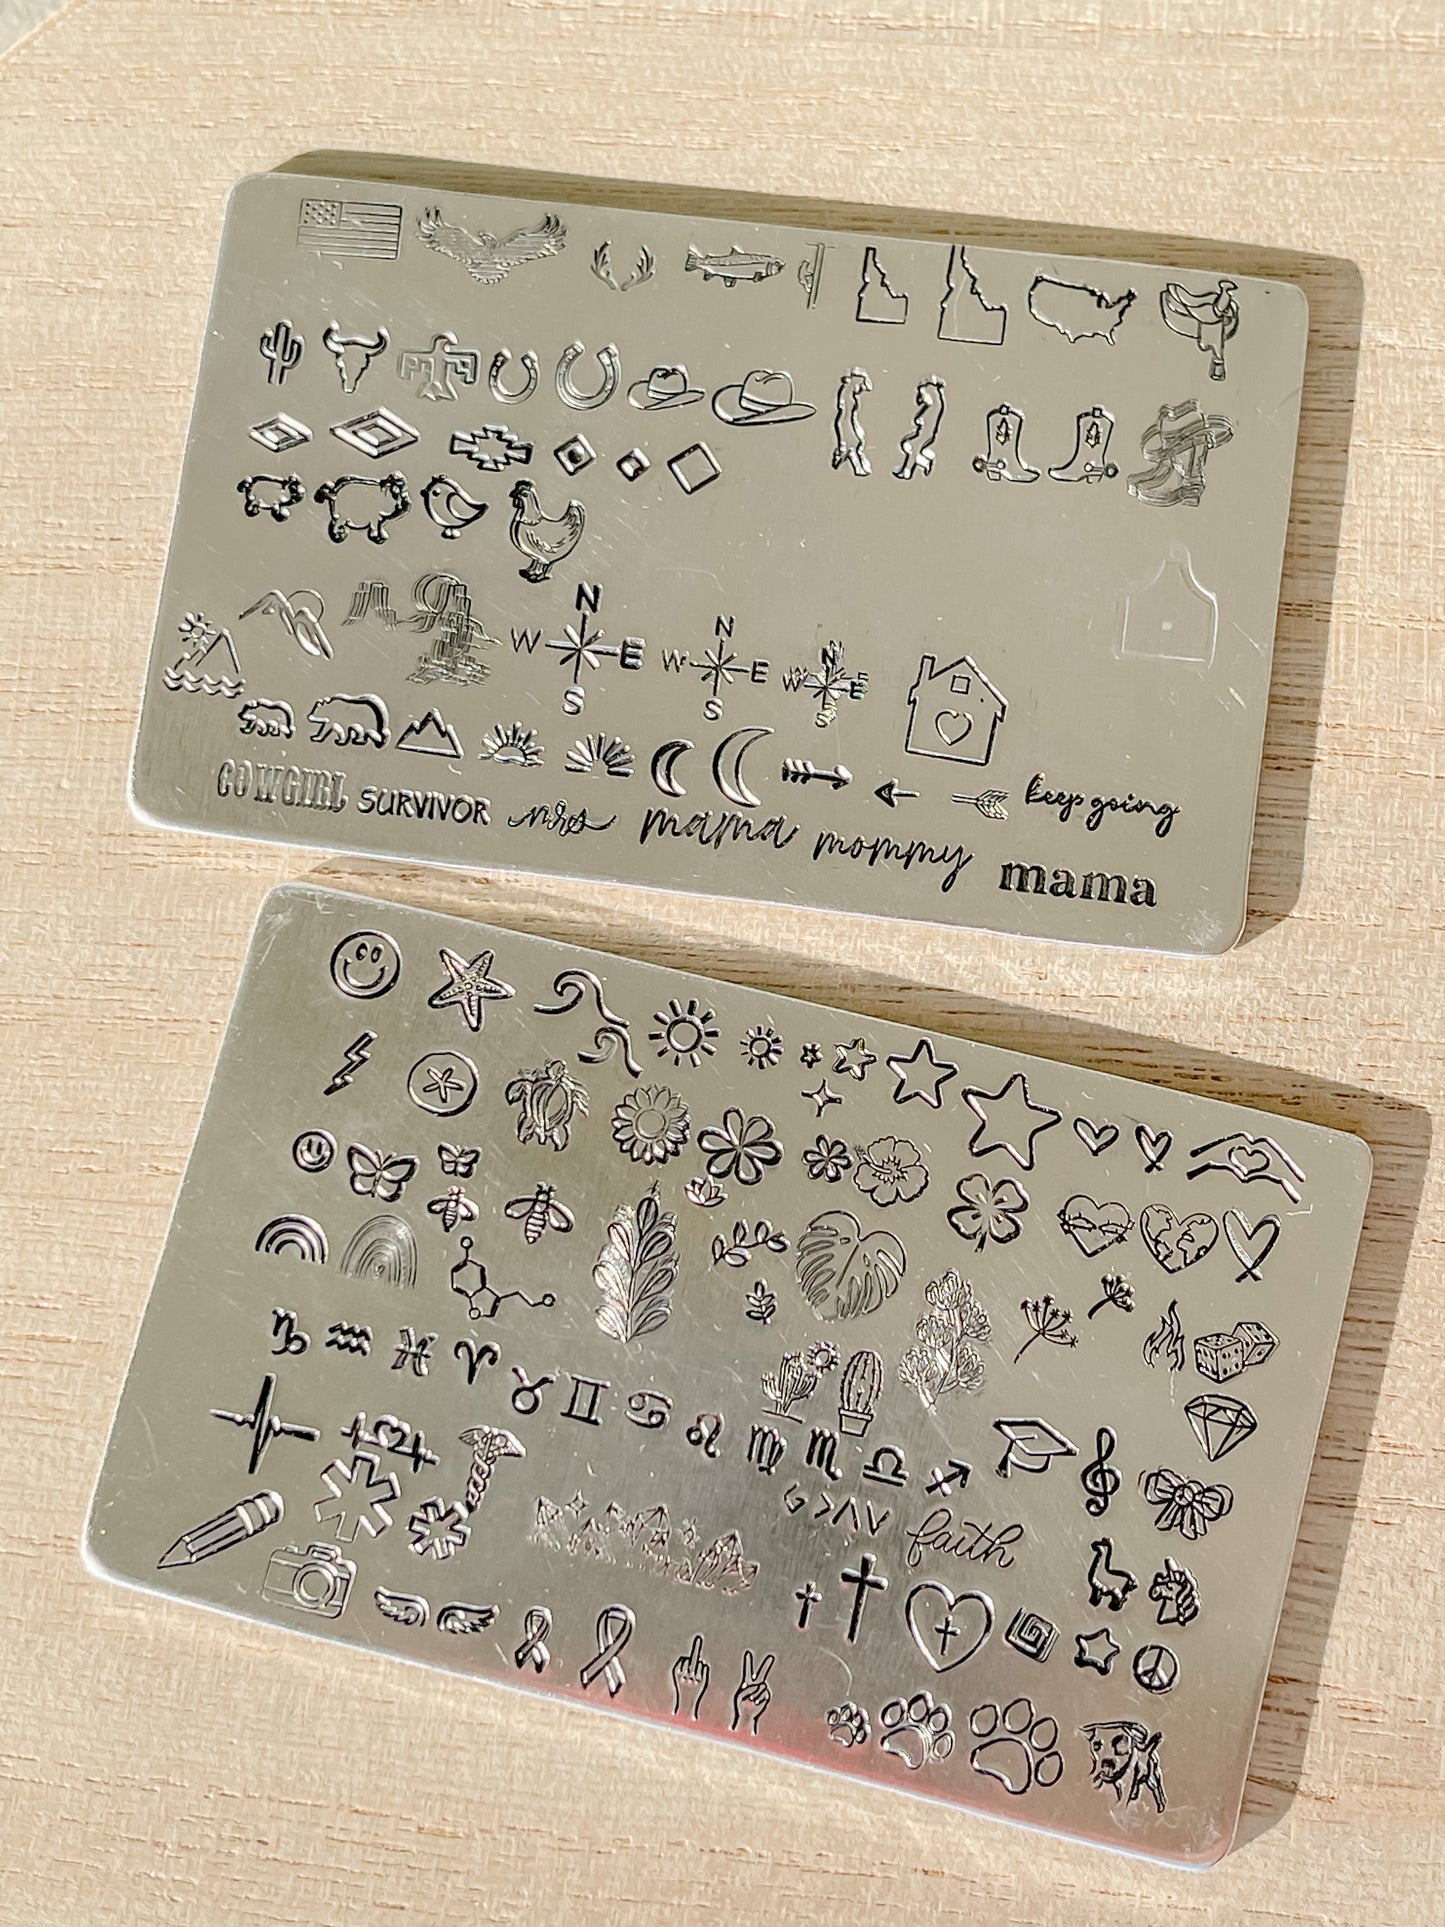 N
W E
S
N
W E
S
N
W E
S
COWGIRL SURVIVOR mrs mama mommy mama
keep going
G><VV
faith